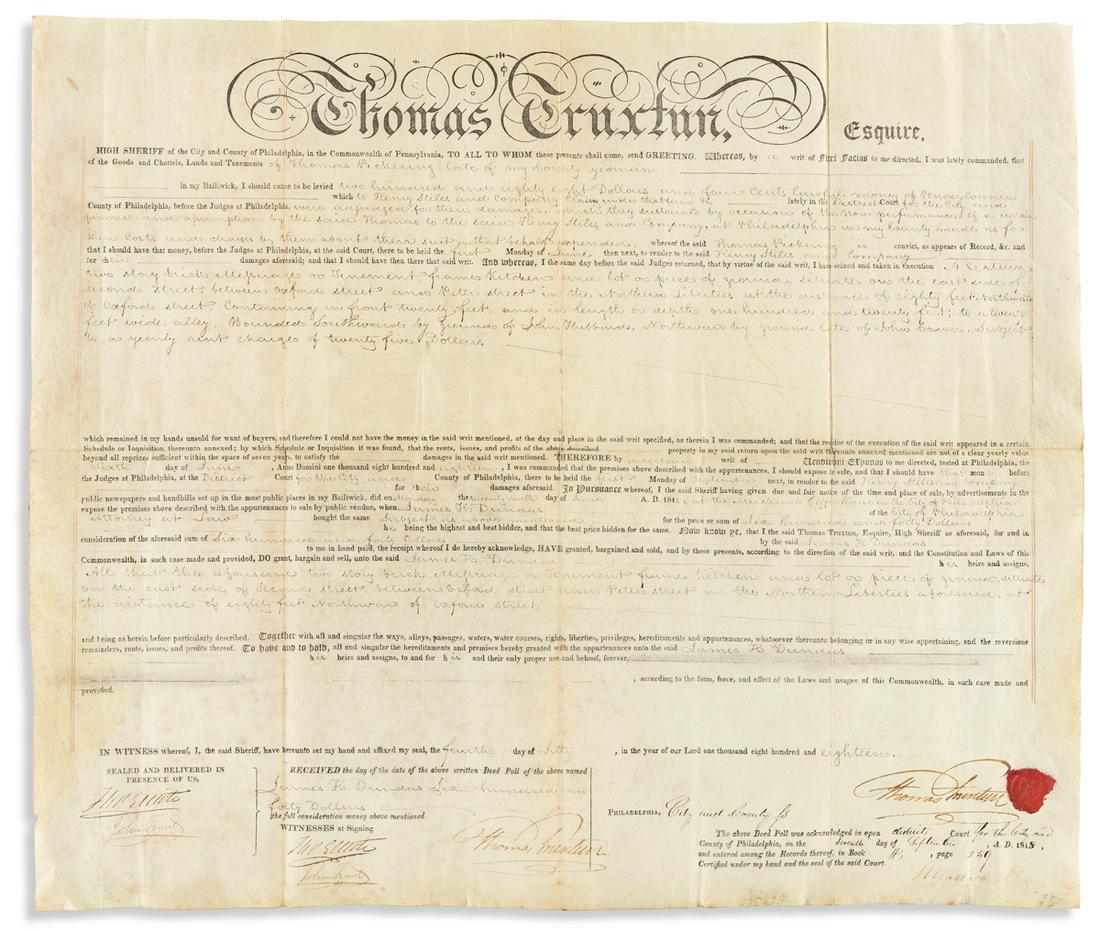 Thomas Truxtun, Esquire.
HIGH SHERIFF of the City and County of Philadelphia, in the Commonwealth of Pennsylvania, TO ALL TO WHOM these presents shall come, send GREETING. Whereas, by a writ of Fieri Facias to me directed, I was lately commanded, that
of the Goods and Chattels, Lands and Tenements of Thomas Pickering late of my County yeoman
in my Bailiwick, I should cause to be levied two hundred and eighty eight Dollars and four Cents lawful money of Pennsylvania
which to Henry Stiles and Company lately in the District Court for the City and
County of Philadelphia, before the Judges at Philadelphia, were adjudged for their damages, which they sustained by occasion of the Non performance of a certain
promise and assumption by the said Thomas to the said Henry Stiles and Company, at Philadelphia in my County made as for
their Costs and charges by them about their suit in that behalf expended, whereof the said Thomas Pickering is convict, as appears of Record, &c. and
that I should have that money, before the Judges at Philadelphia, at the said Court, there to be held the first Monday of June then next, to render to the said Henry Stiles and Company
for their damages aforesaid; and that I should have then there that said writ. And whereas, I the same day before the said Judges returned, that by virtue of the said writ, I have seized and taken in execution A Certain
two story brick Messuage or Tenement frame Kitchen and lot or piece of ground, situate on the east side of
Second Street, between Oxford street and Peter street in the Northern Liberties at the distance of eighty feet Northward
of Oxford street Containing in front twenty feet, and in length or depth one hundred and twenty feet; to a twenty
feet wide alley. Bounded Southward by ground of John Hubbards, Northward by ground late of John Subject
to a yearly rent charge of twenty five Dollars
which remained in my hands unsold for want of buyers, and therefore I could not have the money in the said writ mentioned, at the day and place in the said writ specified, as therein I was commanded; and that the residue of the execution of the said writ appeared in a certain
Schedule or Inquisition thereunto annexed; by which Schedule or Inquisition it was found, that the rents, issues, and profits of the above described property in my said return upon the said writ thereunto annexed mentioned are not of a clear yearly value
beyond all reprizes sufficient within the space of seven years, to satisfy the damages in the said writ mentioned. THEREFORE by writ of Venditioni Exponas to me directed, tested at Philadelphia, the
sixth day of June, Anno Domini one thousand eight hundred and eighteen, I was commanded that the premises above described with the appurtenances, I should expose to sale, and that I should have that money before
the Judges at Philadelphia, at the District Court for the City and County of Philadelphia, there to be held the first Monday of September next, to render to the said Henry Stiles and Company
for their damages aforesaid. In Pursuance whereof, I the said Sheriff having given due and fair notice of the time and place of sale, by advertisements in the
public newspapers and handbills set up in the most public places in my Bailiwick, did on Monday the day of June A. D. 181 , at the Merchants Coffee House in the City of Philadelphia
expose the premises above described with the appurtenances to sale by public vendue, when James H Dundas of the City of Philadelphia
Attorney at Law bought the same Subject as above mentioned for the price or sum of Six hundred and forty Dollars
he being the highest and best bidder, and that the best price bidden for the same. Now know ye, that I the said Thomas Truxtun, Esquire, High Sheriff as aforesaid, for and in
consideration of the aforesaid sum of Six hundred and forty Dollars by the said James H Dundas
to me in hand paid, the receipt whereof I do hereby acknowledge, HAVE granted, bargained and sold, and by these presents, according to the direction of the said writ, and the Constitution and Laws of this
Commonwealth, in such case made and provided, DO grant, bargain and sell, unto the said James H Dundas his heirs and assigns,
All that the aforesaid two story brick Messuage or Tenement frame Kitchen and lot or piece of ground, situate
on the east side of Second street, between Oxford street and Peter street in the Northern Liberties aforesaid, at
the distance of eighty feet Northward of Oxford street
and being as herein before particularly described. Together with all and singular the ways, alleys, passages, waters, water courses, rights, liberties, privileges, hereditaments and appurtenances, whatsoever thereunto belonging or in any wise appertaining, and the reversions
remainders, rents, issues, and profits thereof. To have and to hold, all and singular the hereditaments and premises hereby granted with the appurtenances unto the said James H Dundas
his heirs and assigns, to and for his and their only proper use and behoof, forever,
, according to the form, force, and effect of the Laws and usages of this Commonwealth, in such case made and
provided.
IN WITNESS whereof, I, the said Sheriff, have hereunto set my hand and affixed my seal, the fourth day of July, in the year of our Lord one thousand eight hundred and eighteen.
SEALED AND DELIVERED IN
PRESENCE OF US,
RECEIVED the day of the date of the above written Deed Poll of the above named
James H Dundas Six hundred and
forty Dollars
the full consideration money above mentioned.
WITNESSES at Signing
Thomas Truxtun
Thomas Truxtun
PHILADELPHIA, City and County Ss
The above Deed Poll was acknowledged in open district Court for the City and
County of Philadelphia, on the Seventh day of September, A. D. 1818,
and entered among the Records thereof, in Book , page 250
Certified under my hand and the seal of the said Court.